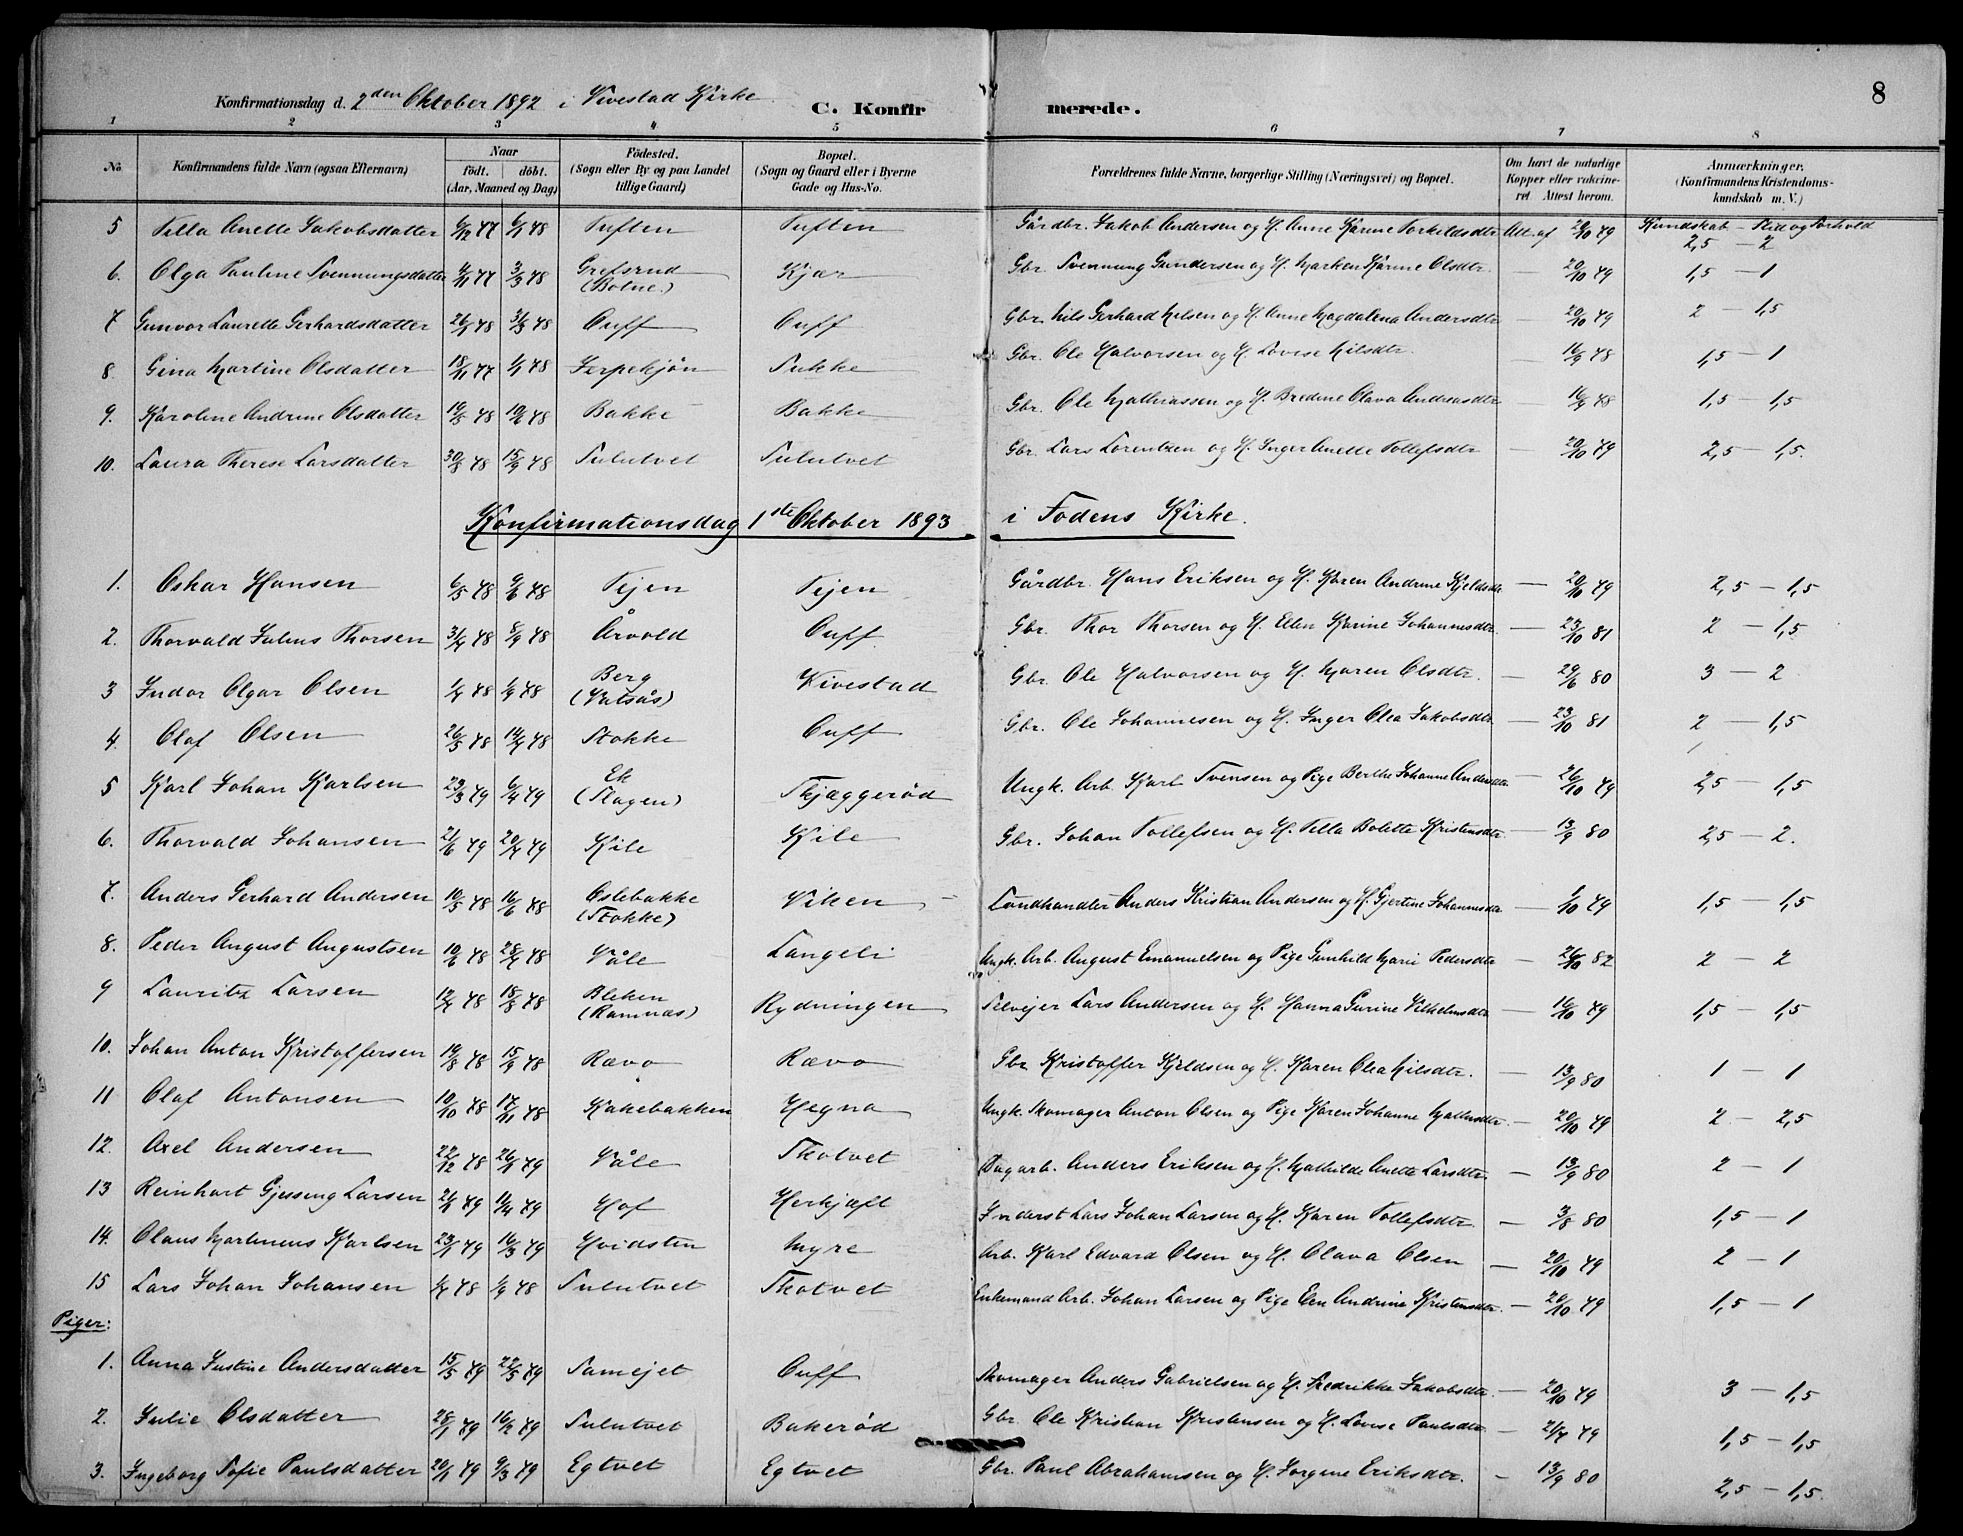 8
Konfirmationsdag d. 2den Oktober 1892 i Vivestad Kirke. C. Konfirmerede.
1 2 3 4 5 6 7 8
No. Konfirmandens fulde Navn (ogsaa Efternavn) Naar født. døbt. (Aar, Maaned og Dag) Fødested. (Sogn eller By og paa Landet tillige Gaard) Bopæl. (Sogn og Gaard eller i Byerne Gade og Hus-No. Forældrenes fulde Navne, borgerlige Stilling (Næringsvei) og Bopæl. Om havt de naturlige Kopper eller vaccineret Attest herom. Anmærkninger. (Konfirmandens Kristendomskundskab m. V.)
Kundskab – Flid og Forhold
5 Tilla Anette Jakobsdatter 6/12 77 6/1 78 Tuften Tuften Gårdbr. Jakob Andersen og H. Anne Karine Torkildsdtr. Att. af 20/10 79 2,5 – 2
6. Olga Pauline Svennungsdatter 4/11 77 3/3 78 Grefsrud (Botne.) Kjær Gbr. Svennung Gundersen og H. Maren Karine Olsdtr. — 20/10 79 1,5 – 1
7 Gunvor Laurette Gerhardsdatter 26/1 78 31/3 78 Ouff Ouff Gbr. Nils Gerhard Nilsen og H. Anne Magdalena Andersdtr — 20/10 79 2 – 1,5
8 Gina Martine Olsdatter 18/11 77 1/1 78 Jerpekjøn Sukke Gbr. Ole Halvorsen og H. Lovise Nilsdtr. — 16/9 78 1,5 – 1
9. Karoline Andrine Olsdatter 19/5 78 10/6 78 Bakke Bakke Gbr. Ole Mathiassen og H. Bredine Olava Andreasdtr — 16/9 78 1,5 – 1,5
10. Laura Therese Larsdatter 30/8 78 15/9 78 Sulutvet Sulutvet Gbr. Lars Lorentzen og H. Inger Anette Tollefsdtr — 20/10 79 2,5 – 1,5.
Konfirmationsdag 1ste Oktober 1893 i Fodens Kirke.
1. Oskar Hansen 6/5 78 9/6 78 Tejen Tejen Gårdbr. Hans Eriksen og H. Karen Andrine Kjeldsdtr — 20/10 79 2,5 – 1,5
2. Thorvald Julius Thorsen 31/7 78 8/9 78 Årvold Ouff Gbr. Thor Thorsen og H. Ellen Karine Johannesdtr. — 23/10 81 2 – 1,5
3 Indor Olgar Olsen 1/7 78 1/9 78 Berg (Vatsås) Vivestad Gbr. Ole Halvorsen og H. Maren Olsdtr. — 29/6 80 3 – 2
4. Olaf Olsen 26/5 78 14/7 78 Stokke Ouff Gbr. Ole Johannesen og H. Inger Olea Jakobsdtr. — 23/10 81 2 – 1,5
5 Karl Johan Karlsen 23/3 79 6/4 79 Ek (Slagen) Skjæggerød Ungk. Arb. Karl Svensen og Pige Berthe Johanne Andersdtr — 26/10 79 2,5 – 1,5
6. Thorvald Johansen 21/6 79 20/7 79 Kile Kile Gbr. Johan Tollefsen og H. Tilla Bolette Kristensdtr — 13/9 80 2,5 – 2.
7. Anders Gerhard Andersen 10/5 78 16/6 78 Oslebakke (Stokke) Viken Landhandler Anders Kristian Andersen og H. Gjertine Johannesdtr — 1/10 79 1,5 – 1,5
8. Peder August Augustsen 10/6 78 28/7 78 Våle Langeli Ungk. Arb. August Emanuelsen og Pige Gunhild Marie Pedersdtr — 26/10 82 2 – 2
9 Lauritz Larsen 12/7 78 18/8 78 Bleken (Ramnæs) Rydningen Selvejer Lars Andersen og H. Hanna Gurine Vilhelmsdtr — 16/10 79 1,5 – 1,5
10. Johan Anton Kristoffersen 19/8 78 15/9 78 Rævo Rævo Gbr Kristoffer Kjeldsen og H. Karen Olea Nilsdtr. — 13/9 80 1 – 1
11 Olaf Antonsen 10/10 78 17/11 78 Kakebakken Hegna Ungk. Skomager Anton Olsen og Pige Karen Johanne Mathisdtr — 20/10 79 2 – 2,5
12. Axel Andersen 22/12 78 26/1 79 Våle Skotvet Dagarb. Anders Eriksen og H. Mathilde Anette Larsdtr. — 13/9 80 2 – 1
13 Reinhart Gjessing Larsen 21/1 79 14/4 79 Hof Herkjæft Inderst Lars Johan Larsen og H. Karen Tollefsdtr. — 3/8 80 1,5 – 1
14. Olaus Martinius Karlsen 23/1 79 16/3 79 Hvidsten Myre Arb. Karl Edvard Olsen og H. Olava Olsen — 20/10 79 2 – 1
15 Lars Johan Johansen 1/7 78 1/9 78 Sulutvet Skotvet Enkemand Arb. Johan Larsen og Pige Elen Andrine Kristensdtr. — 20/10 79 1,5 – 1
Piger:
1. Anna Justine Andersdatter 15/3 79 22/5 79 Samejet Ouff Skomager Anders Gabrielsen og H. Fredrikke Jakobsdtr. — 20/10 79 3 – 1,5
2. Julie Olsdatter 28/1 79 16/2 79 Sulutvet Bakerød Gbr. Ole Kristian Kristensen og H. Lovise Paulsdtr. — 21/7 79 1,5 – 1,5
3. Ingeborg Sofie Paulsdatter 20/1 79 9/3 79 Egtvet Egtvet Gbr. Paul Abrahamsen og H. Jørgine Eriksdtr. — 13/9 80 2,5 – 1,5.